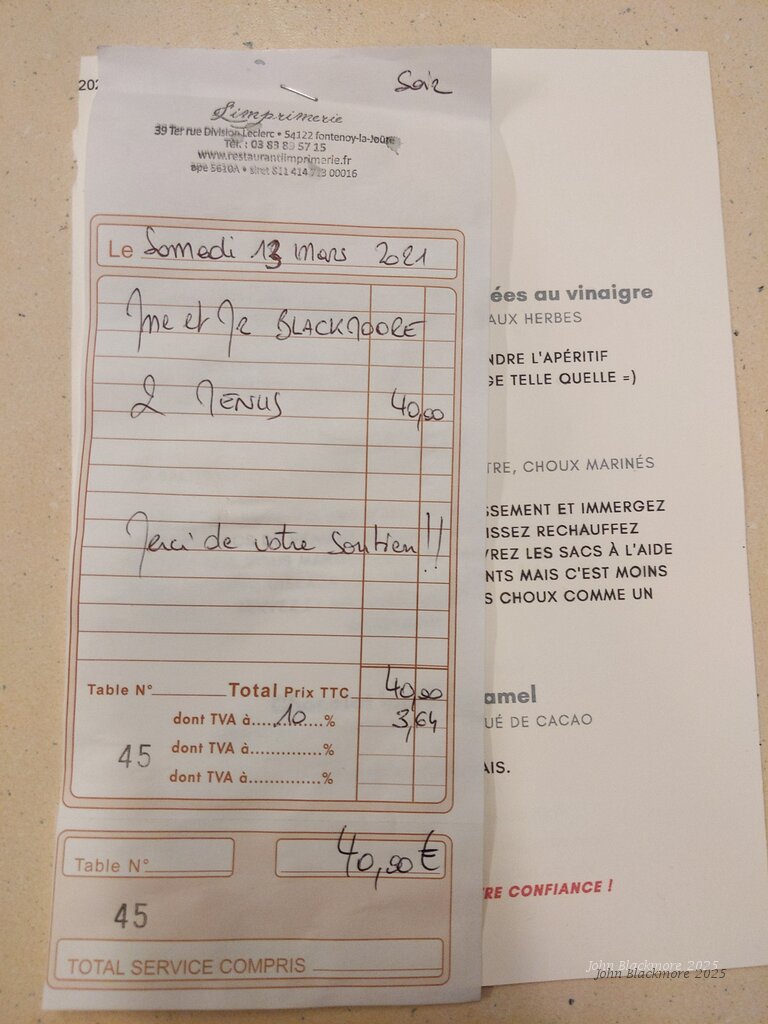 202
Soir
L'imprimerie
39 Ter rue Division Leclerc • 54122 fontenoy-la-Joûte
Tél. : 03 83 89 57 15
www.restaurantlimprimerie.fr
ape 5610A • siret 811 414 713 00016
Le Samedi 13 Mars 2021
Mme et Mr BLACKMOORE
2 MENUS 40,00
Merci de votre soutien !!
Table N° Total Prix TTC 40,00
dont TVA à.....10.....% 3,64
dont TVA à.............%
45
dont TVA à.............%
40,00€
Table N°
45
TOTAL SERVICE COMPRIS
ées au vinaigre
AUX HERBES
NDRE L'APÉRITIF
GE TELLE QUELLE =)
TRE, CHOUX MARINÉS
SSEMENT ET IMMERGEZ
ISSEZ RECHAUFFEZ
VREZ LES SACS À L'AIDE
NTS MAIS C'EST MOINS
S CHOUX COMME UN
amel
UÉ DE CACAO
AIS.
RE CONFIANCE !
John Blackmore 2025